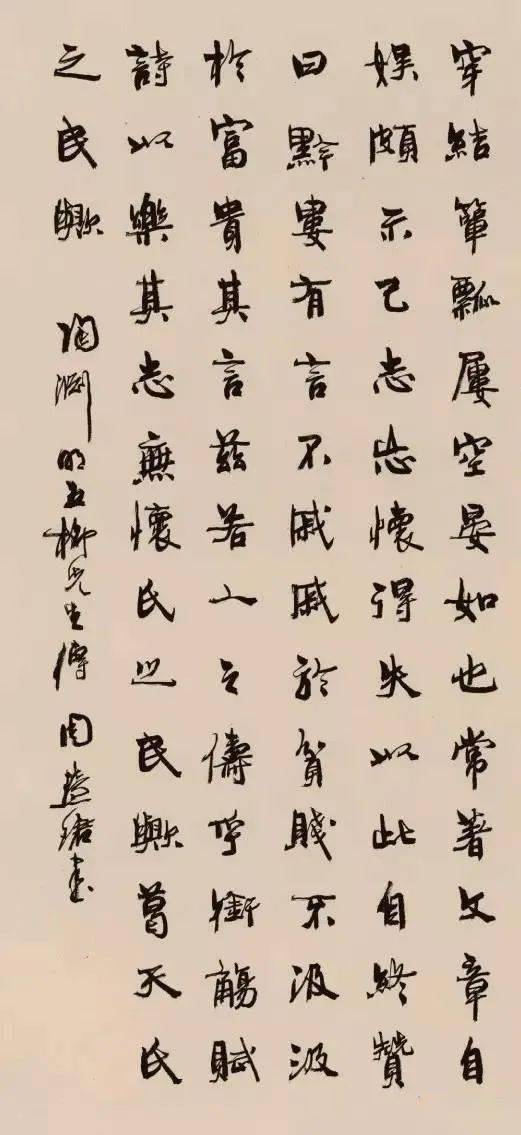 穿結簞瓢屢空晏如也常著文章自
娱頗示己志忘懷得失以此自終贊
曰黔婁有言不戚戚於貧賤不汲汲
於富貴其言茲若人之儔乎銜觴賦
詩以樂其志無懷氏之民歟葛天氏
之民歟
陶淵明五柳先生傳 周慧珺書